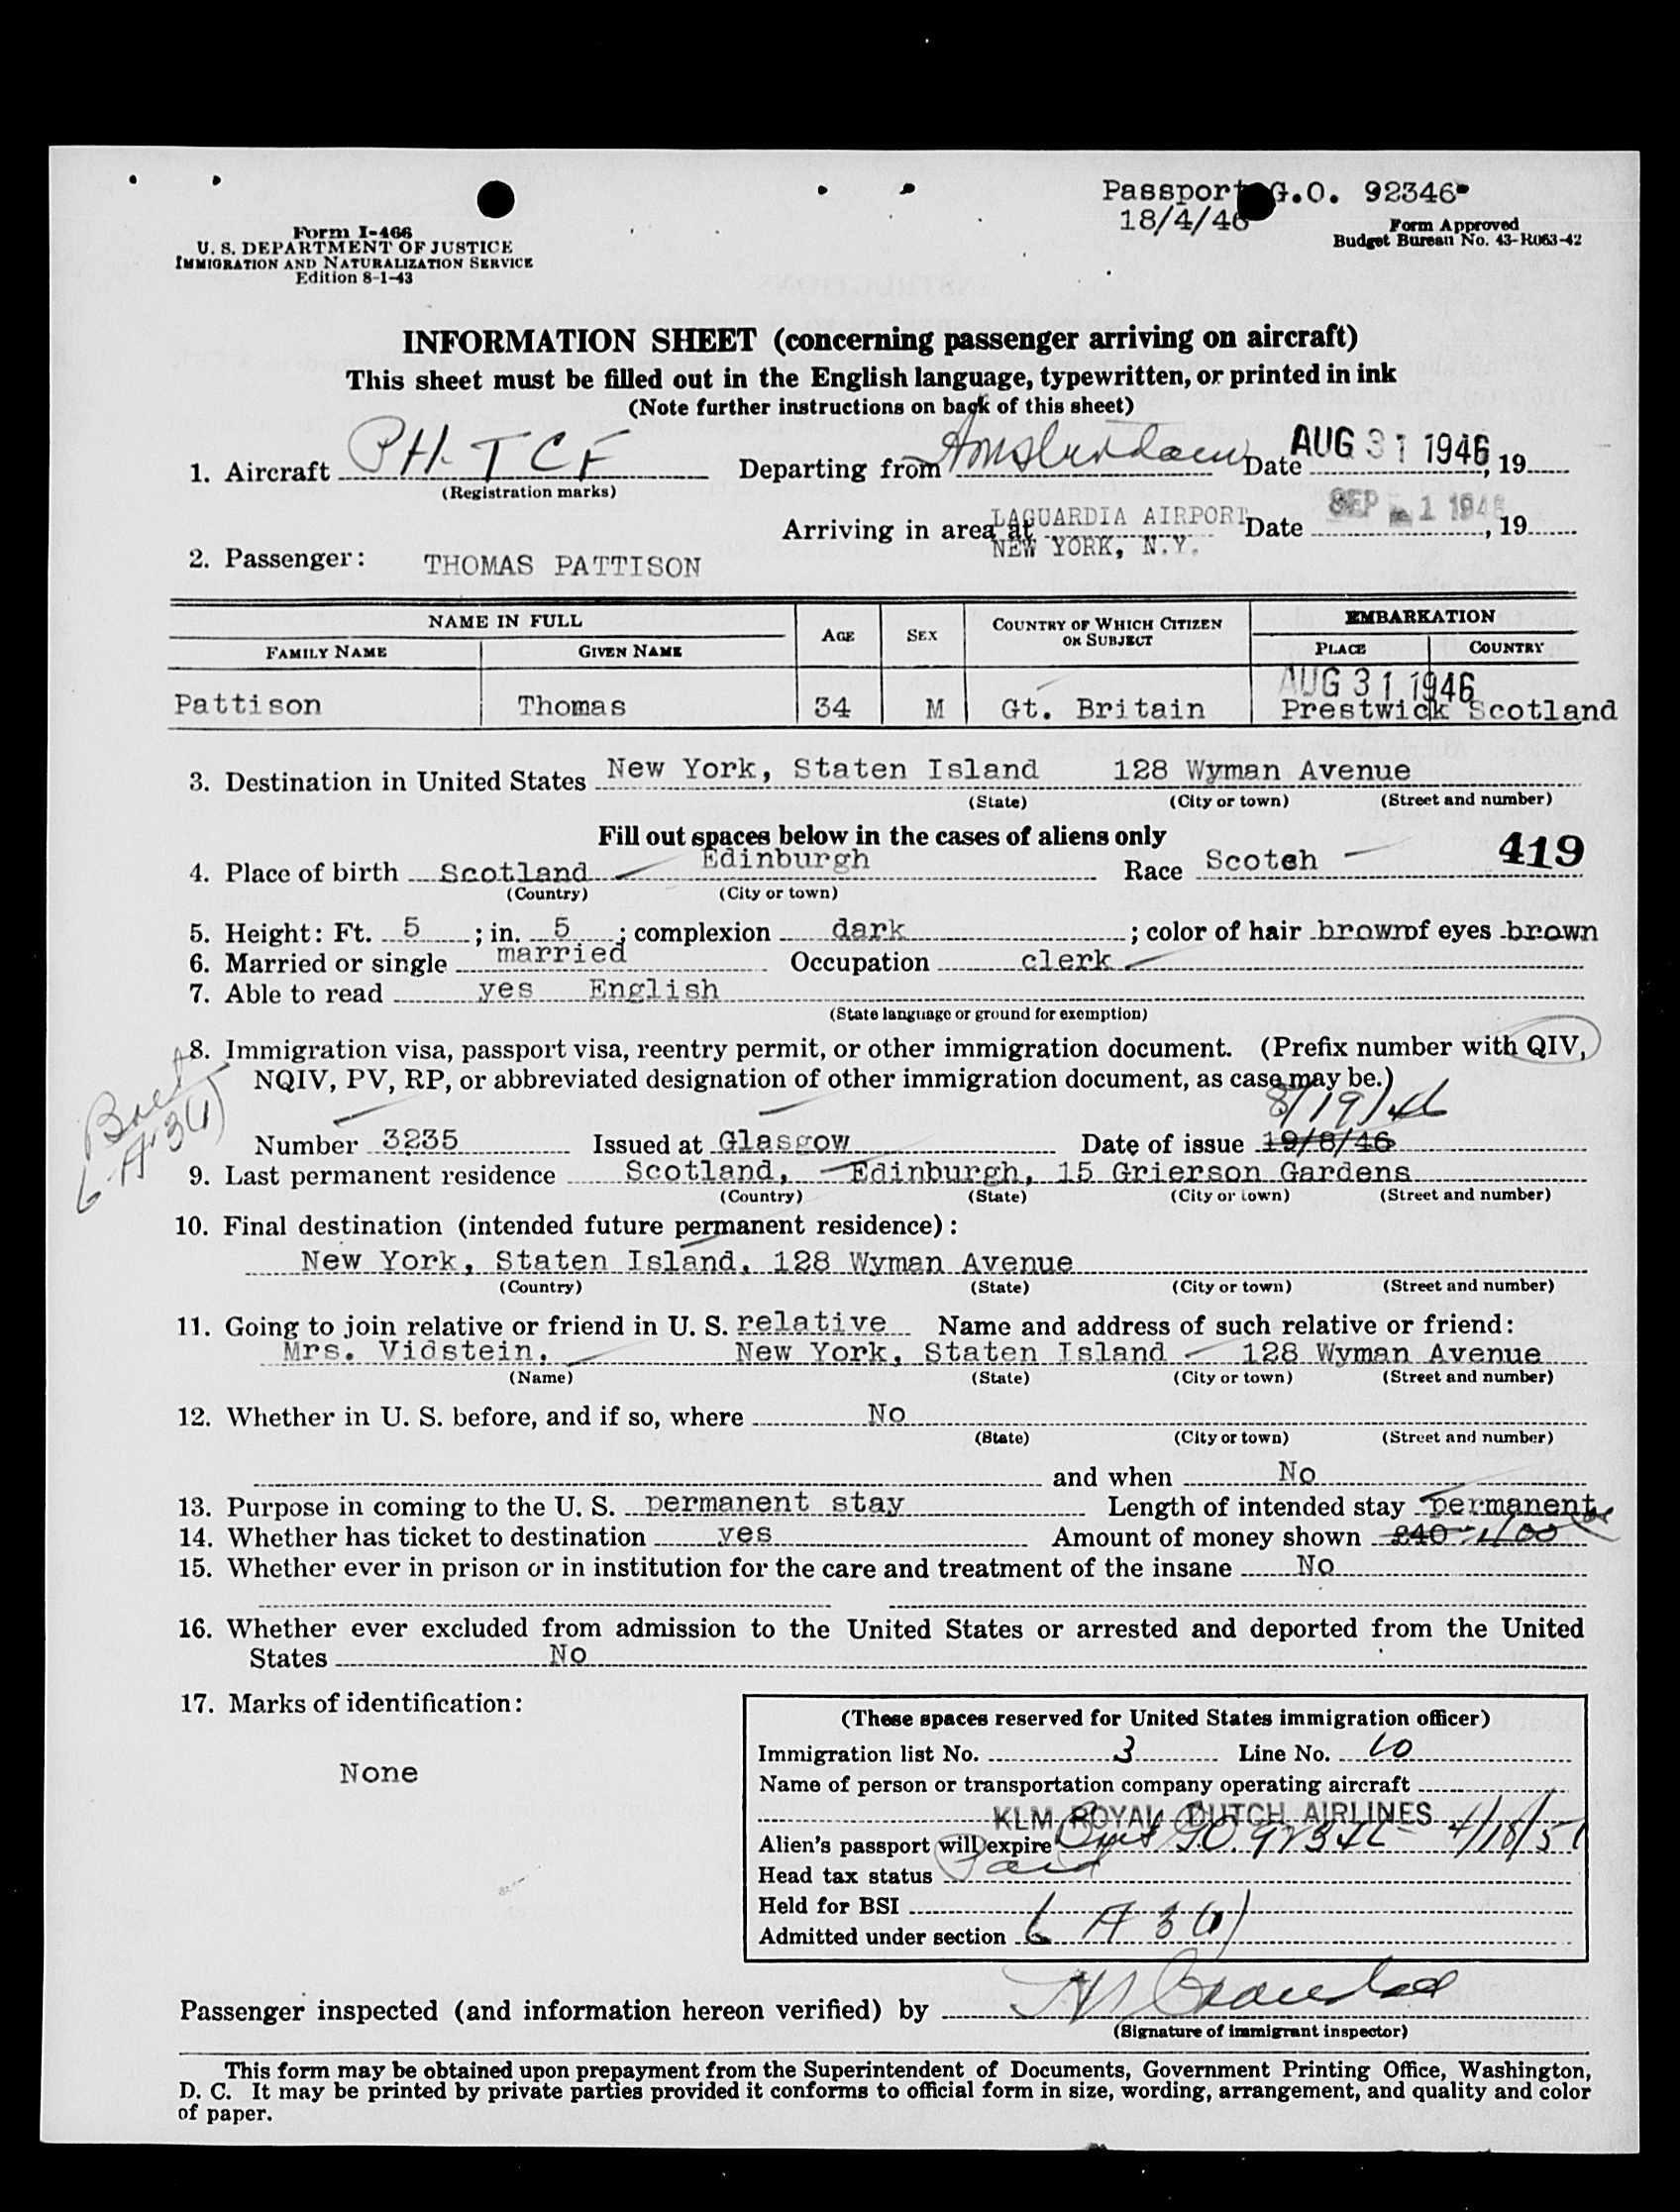 Passport G.O. 92346
18/4/46
Form Approved
Budget Bureau No. 43-R063-42
Form I-466
U. S. DEPARTMENT OF JUSTICE
IMMIGRATION AND NATURALIZATION SERVICE
Edition 8-1-43
INFORMATION SHEET (concerning passenger arriving on aircraft)
This sheet must be filled out in the English language, typewritten, or printed in ink
(Note further instructions on back of this sheet)
1. Aircraft PH-TCF Departing from Amsterdam Date AUG 31 1946, 19
(Registration marks)
Arriving in area at LAGUARDIA AIRPORT NEW YORK, N.Y. Date SEP 1 1946, 19
2. Passenger: THOMAS PATTISON
NAME IN FULL AGE SEX COUNTRY OF WHICH CITIZEN OR SUBJECT EMBARKATION
FAMILY NAME GIVEN NAME PLACE COUNTRY
AUG 31 1946
Pattison Thomas 34 M Gt. Britain Prestwick Scotland
3. Destination in United States New York, Staten Island 128 Wyman Avenue
(State) (City or town) (Street and number)
Fill out spaces below in the cases of aliens only
4. Place of birth Scotland Edinburgh Race Scotch 419
(Country) (City or town)
5. Height: Ft. 5; in. 5; complexion dark; color of hair brown of eyes brown
6. Married or single married Occupation clerk
7. Able to read yes English
(State language or ground for exemption)
8. Immigration visa, passport visa, reentry permit, or other immigration document. (Prefix number with QIV,
NQIV, PV, RP, or abbreviated designation of other immigration document, as case may be.)
8/19/46
6-A-3(1)
Number 3235 Issued at Glasgow Date of issue 19/8/46
9. Last permanent residence Scotland, Edinburgh, 15 Grierson Gardens
(Country) (State) (City or town) (Street and number)
10. Final destination (intended future permanent residence):
New York, Staten Island, 128 Wyman Avenue
(Country) (State) (City or town) (Street and number)
11. Going to join relative or friend in U. S. relative Name and address of such relative or friend:
Mrs. Vidstein, New York, Staten Island 128 Wyman Avenue
(Name) (State) (City or town) (Street and number)
12. Whether in U. S. before, and if so, where No
(State) (City or town) (Street and number)
and when No
13. Purpose in coming to the U. S. permanent stay Length of intended stay permanent
14. Whether has ticket to destination yes Amount of money shown £40 100
15. Whether ever in prison or in institution for the care and treatment of the insane No
16. Whether ever excluded from admission to the United States or arrested and deported from the United
States No
17. Marks of identification:
None
(These spaces reserved for United States immigration officer)
Immigration list No. 3 Line No. 10
Name of person or transportation company operating aircraft
KLM ROYAL DUTCH AIRLINES
Alien's passport will expire Brit GO. 92346 4/18/51
Head tax status Paid
Held for BSI
Admitted under section 6 A 3 (1)
Passenger inspected (and information hereon verified) by
(Signature of immigrant inspector)
This form may be obtained upon prepayment from the Superintendent of Documents, Government Printing Office, Washington,
D. C. It may be printed by private parties provided it conforms to official form in size, wording, arrangement, and quality and color
of paper.